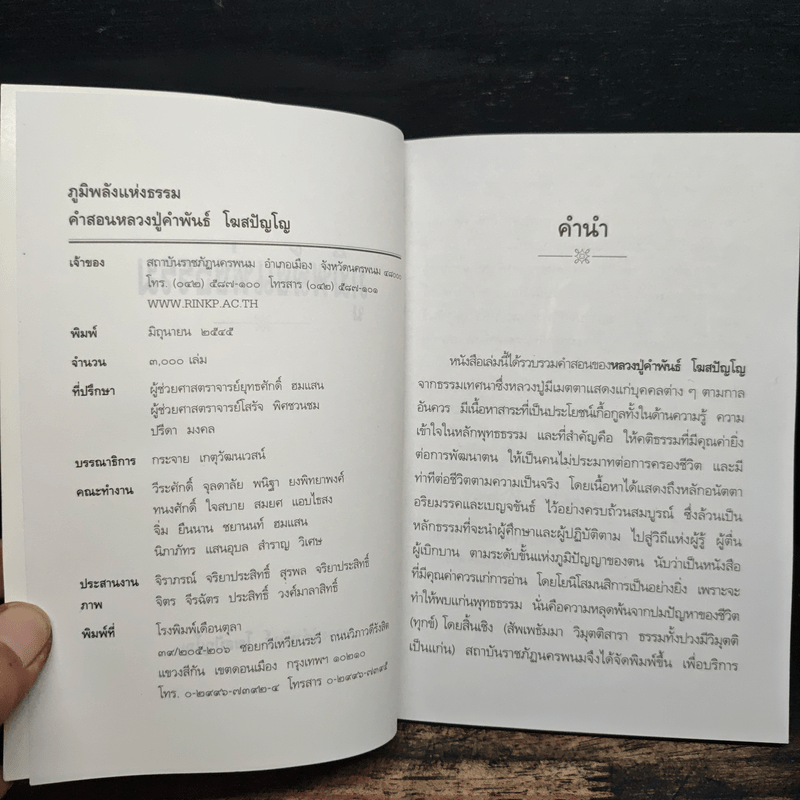 ภูมิพลังแห่งธรรม
คำสอนหลวงปู่คำพันธ์ โฆสปัญโญ
เจ้าของ สถาบันราชภัฏนครพนม อำเภอเมือง จังหวัดนครพนม ๔๘๐๐๐
โทร. (๐๔๒) ๕๘๗-๑๐๐ โทรสาร (๐๔๒) ๕๘๗-๑๐๑
WWW.RINKP.AC.TH
พิมพ์ มิถุนายน ๒๕๔๕
จำนวน ๓,๐๐๐ เล่ม
ที่ปรึกษา ผู้ช่วยศาสตราจารย์ยุทธศักดิ์ ฮมแสน
ผู้ช่วยศาสตราจารย์โสรัจ พิศชวนชม
ปรีดา มงคล
บรรณาธิการ กระจาย เกตุวัฒนเวสน์
คณะทำงาน วีระศักดิ์ จุลดาลัย พนิฐา ยงพิทยาพงศ์
ทนงศักดิ์ ใจสบาย สมยศ แอบไธสง
จิ่ม ยืนนาน ชยานนท์ ฮมแสน
นิภาภัทร แสนอุบล สำราญ วิเศษ
ประสานงาน จิราภรณ์ จริยาประสิทธิ์ สุรพล จริยาประสิทธิ์
ภาพ จิตร จีรฉัตร ประสิทธิ์ วงศ์มาลาสิทธิ์
พิมพ์ที่ โรงพิมพ์เดือนตุลา
๓๙/๒๐๕-๒๐๖ ซอยกวีเหวียนระวี ถนนวิภาวดีรังสิต
แขวงสีกัน เขตดอนเมือง กรุงเทพฯ ๑๐๒๑๐
โทร. ๐-๒๙๙๖-๗๓๙๒-๔ โทรสาร ๐-๒๙๙๖-๗๓๙๕
คำนำ
หนังสือเล่มนี้ได้รวบรวมคำสอนของหลวงปู่คำพันธ์ โฆสปัญโญ
จากธรรมเทศนาซึ่งหลวงปู่มีเมตตาแสดงแก่บุคคลต่าง ๆ ตามกาล
อันควร มีเนื้อหาสาระที่เป็นประโยชน์เกื้อกูลทั้งในด้านความรู้ ความ
เข้าใจในหลักพุทธธรรม และที่สำคัญคือ ให้คติธรรมที่มีคุณค่ายิ่ง
ต่อการพัฒนาตน ให้เป็นคนไม่ประมาทต่อการครองชีวิต และมี
ท่าทีต่อชีวิตตามความเป็นจริง โดยเนื้อหาได้แสดงถึงหลักอนัตตา
อริยมรรคและเบญจขันธ์ ไว้อย่างครบถ้วนสมบูรณ์ ซึ่งล้วนเป็น
หลักธรรมที่จะนำผู้ศึกษาและผู้ปฏิบัติตาม ไปสู่วิถีแห่งผู้รู้ ผู้ตื่น
ผู้เบิกบาน ตามระดับขั้นแห่งภูมิปัญญาของตน นับว่าเป็นหนังสือ
ที่มีคุณค่าควรแก่การอ่าน โดยโยนิโสมนสิการเป็นอย่างยิ่ง เพราะจะ
ทำให้พบแก่นพุทธธรรม นั่นคือความหลุดพ้นจากปมปัญหาของชีวิต
(ทุกข์) โดยสิ้นเชิง (สัพเพธัมมา วิมุตติสารา ธรรมทั้งปวงมีวิมุตติ
เป็นแก่น) สถาบันราชภัฏนครพนมจึงได้จัดพิมพ์ขึ้น เพื่อบริการ